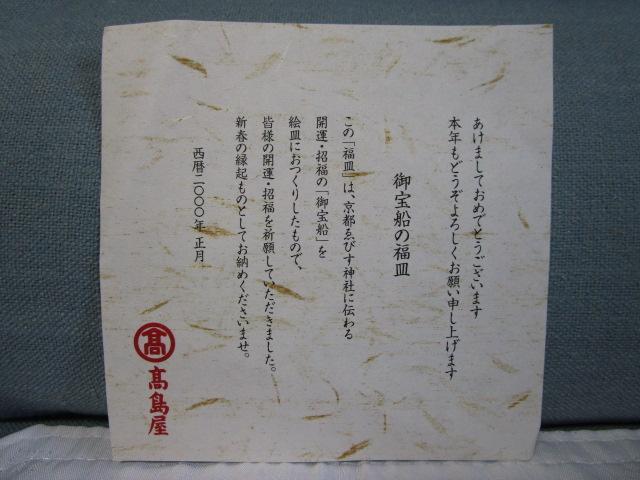 あけましておめでとうございます
本年もどうぞよろしくお願い申し上げます
御宝船の福皿
この「福皿」は、京都ゑびす神社に伝わる
開運・招福の「御宝船」を
絵皿におつくりしたもので、
皆様の開運・招福を祈願していただきました。
新春の縁起ものとしてお納めくださいませ。
西暦二〇〇〇年 正月
髙
髙島屋